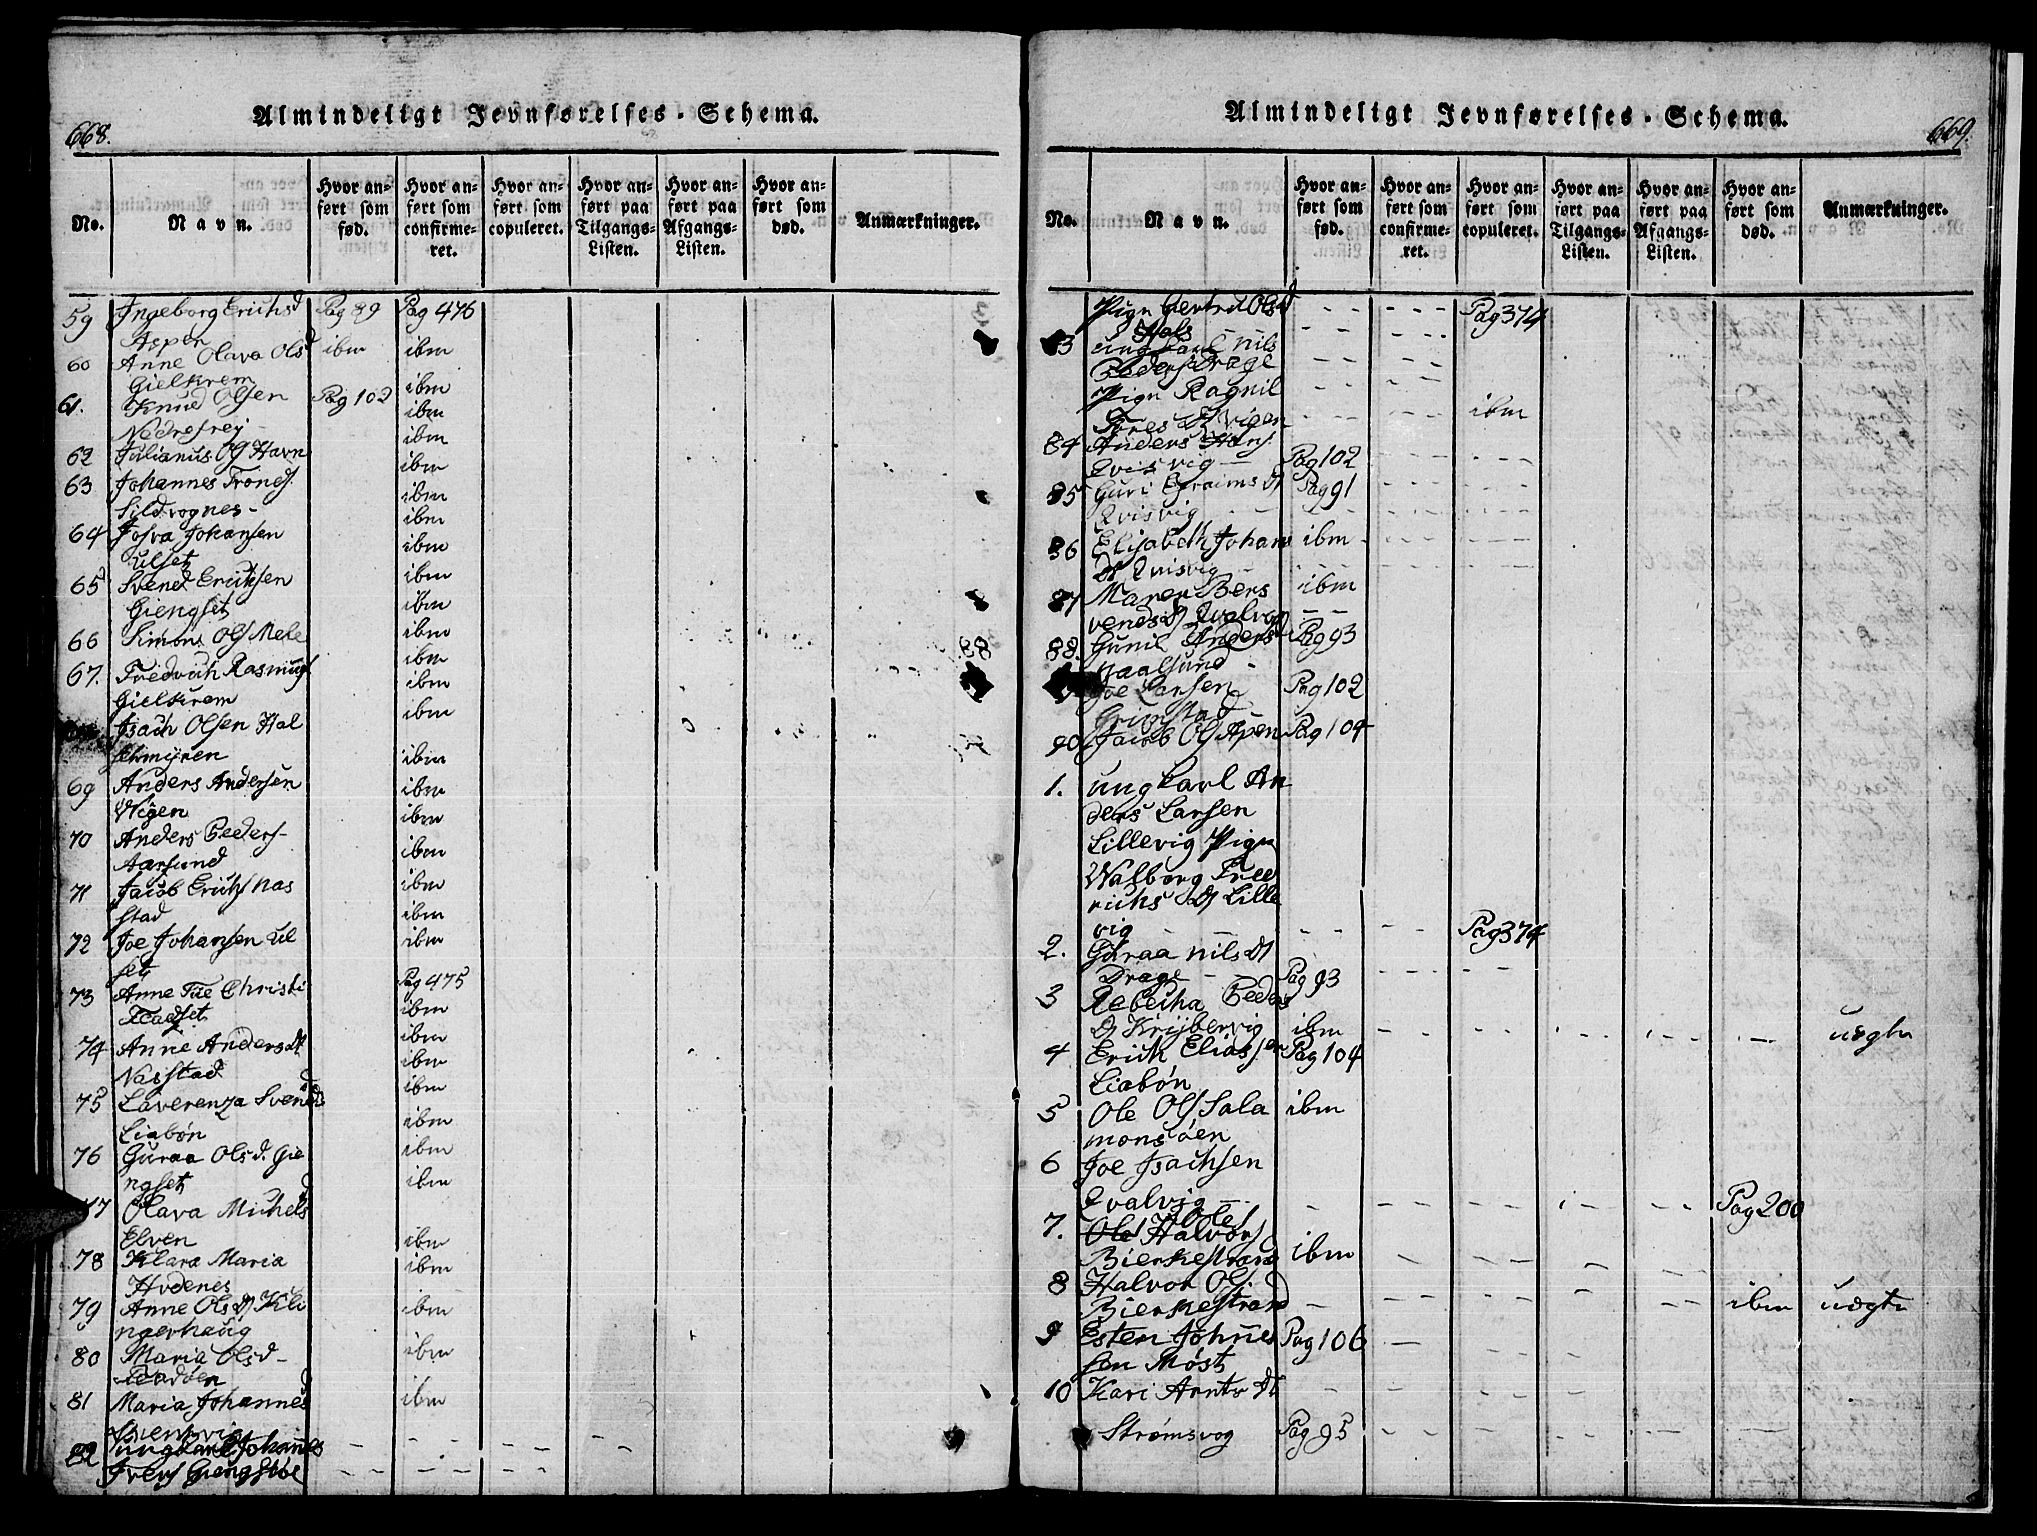 668.
Almindeligt Jevnførelses-Schema.
No.
Navn.
Hvor anført som fød.
Hvor anført som confirmeret.
Hvor anført som copuleret.
Hvor anført paa Tilgangs-Listen.
Hvor anført paa Afgangs-Listen.
Hvor anført som død.
Anmærkninger.
59 Ingeborg Erichsd Pag 89 Pag 476
Asper
60 Anne Olava Olsd ibm ibm
Gielkrem ibm
61. Knud Olsen Pag 102 ibm
Nedrefrej ibm
62 Julianus Ols Havn ibm
63 Johannes Trondf. ibm
Sildvognes - ibm
64 Josva Johansen ibm
Ulset ibm
65 Svend Erichsen ibm
Giengset ibm
66 Simons Ols Mele ibm
67. Fredrich Rasmusf ibm
Gielkrem ibm
Isach Olsen Hal
semyren ibm
69 Anders Andersen ibm
Wigen ibm
70 Anders Peders- ibm
Aarsund ibm
71 Jacob Erichs Nas ibm
stad ibm
72 Joe Johansen Ul
set Pag 475
73 Anne Tue Christi ibm
ibm
74 Anne Anders Dt ibm
Nasstad ibm
75 Laverenza Svends ibm
Liabøn ibm
76 Guraa Ols d. Gie
ngset ibm
77 Olava Michels
Elven ibm
78 Klara Maria ibm
Hvdenes
79 Anne Ols Dt Kli ibm
ngerhaug
80 Maria Olsd - ibm
81 Maria Johannesd ibm
82 ungkarl Johannes - - - - -
Ivers Giengstøe - - - -
669.
Almindeligt Jevnførelses-Schema.
No.
Navn.
Hvor anført som fød.
Hvor anført som confirmeret.
Hvor anført som copuleret.
Hvor anført paa Tilgangs-Listen.
Hvor anført paa Afgangs-Listen.
Hvor anført som død.
Anmærkninger.
Pign Gertrud Olsd - - - - Pag 374
Hals
83 ungkarl Nils
Peders Drage
Pign Ragnil
Tores Dt Wigen - - ibm
84 Anders Hans
Qvisvig - Pag 102
85 Guri Efraims Dt Pag 91
Qvisvig
86 Elisabeth Johans ibm
Dt Qvisvig
87 Maren Bers ibm
venesd Qvalvog - -
88. Gunil Anders Pag 93
Naalsund
Joe Larsen Pag 102
Grimstad
90 Jacob Ols Apen Pag 104
1. ungkarl An
ders Larsen
Lillevig Pign
Walborg Free
richs Dt Lille
vig - - - - Pag 374
2. Guraa Nils Dt
Drage - Pag 93
3 Rebecha Peders
Dt Krijbervig ibm uægte
4 Erich Eliassen Pag 104
Liabøn
5 Ole Ols Sala ibm
monsøen
6 Joe Isachsen
Qvalvig - - - - - - Pag 200
Oles
7. Ole Halvors
Bierkestrand ibm
8 Halvor Ols
Bierkestrand - - - - - ibm uægte
9 Esten Johnes Pag 106
sen Møst
10 Kari Arnts Dt
Strømsvog Pag 95